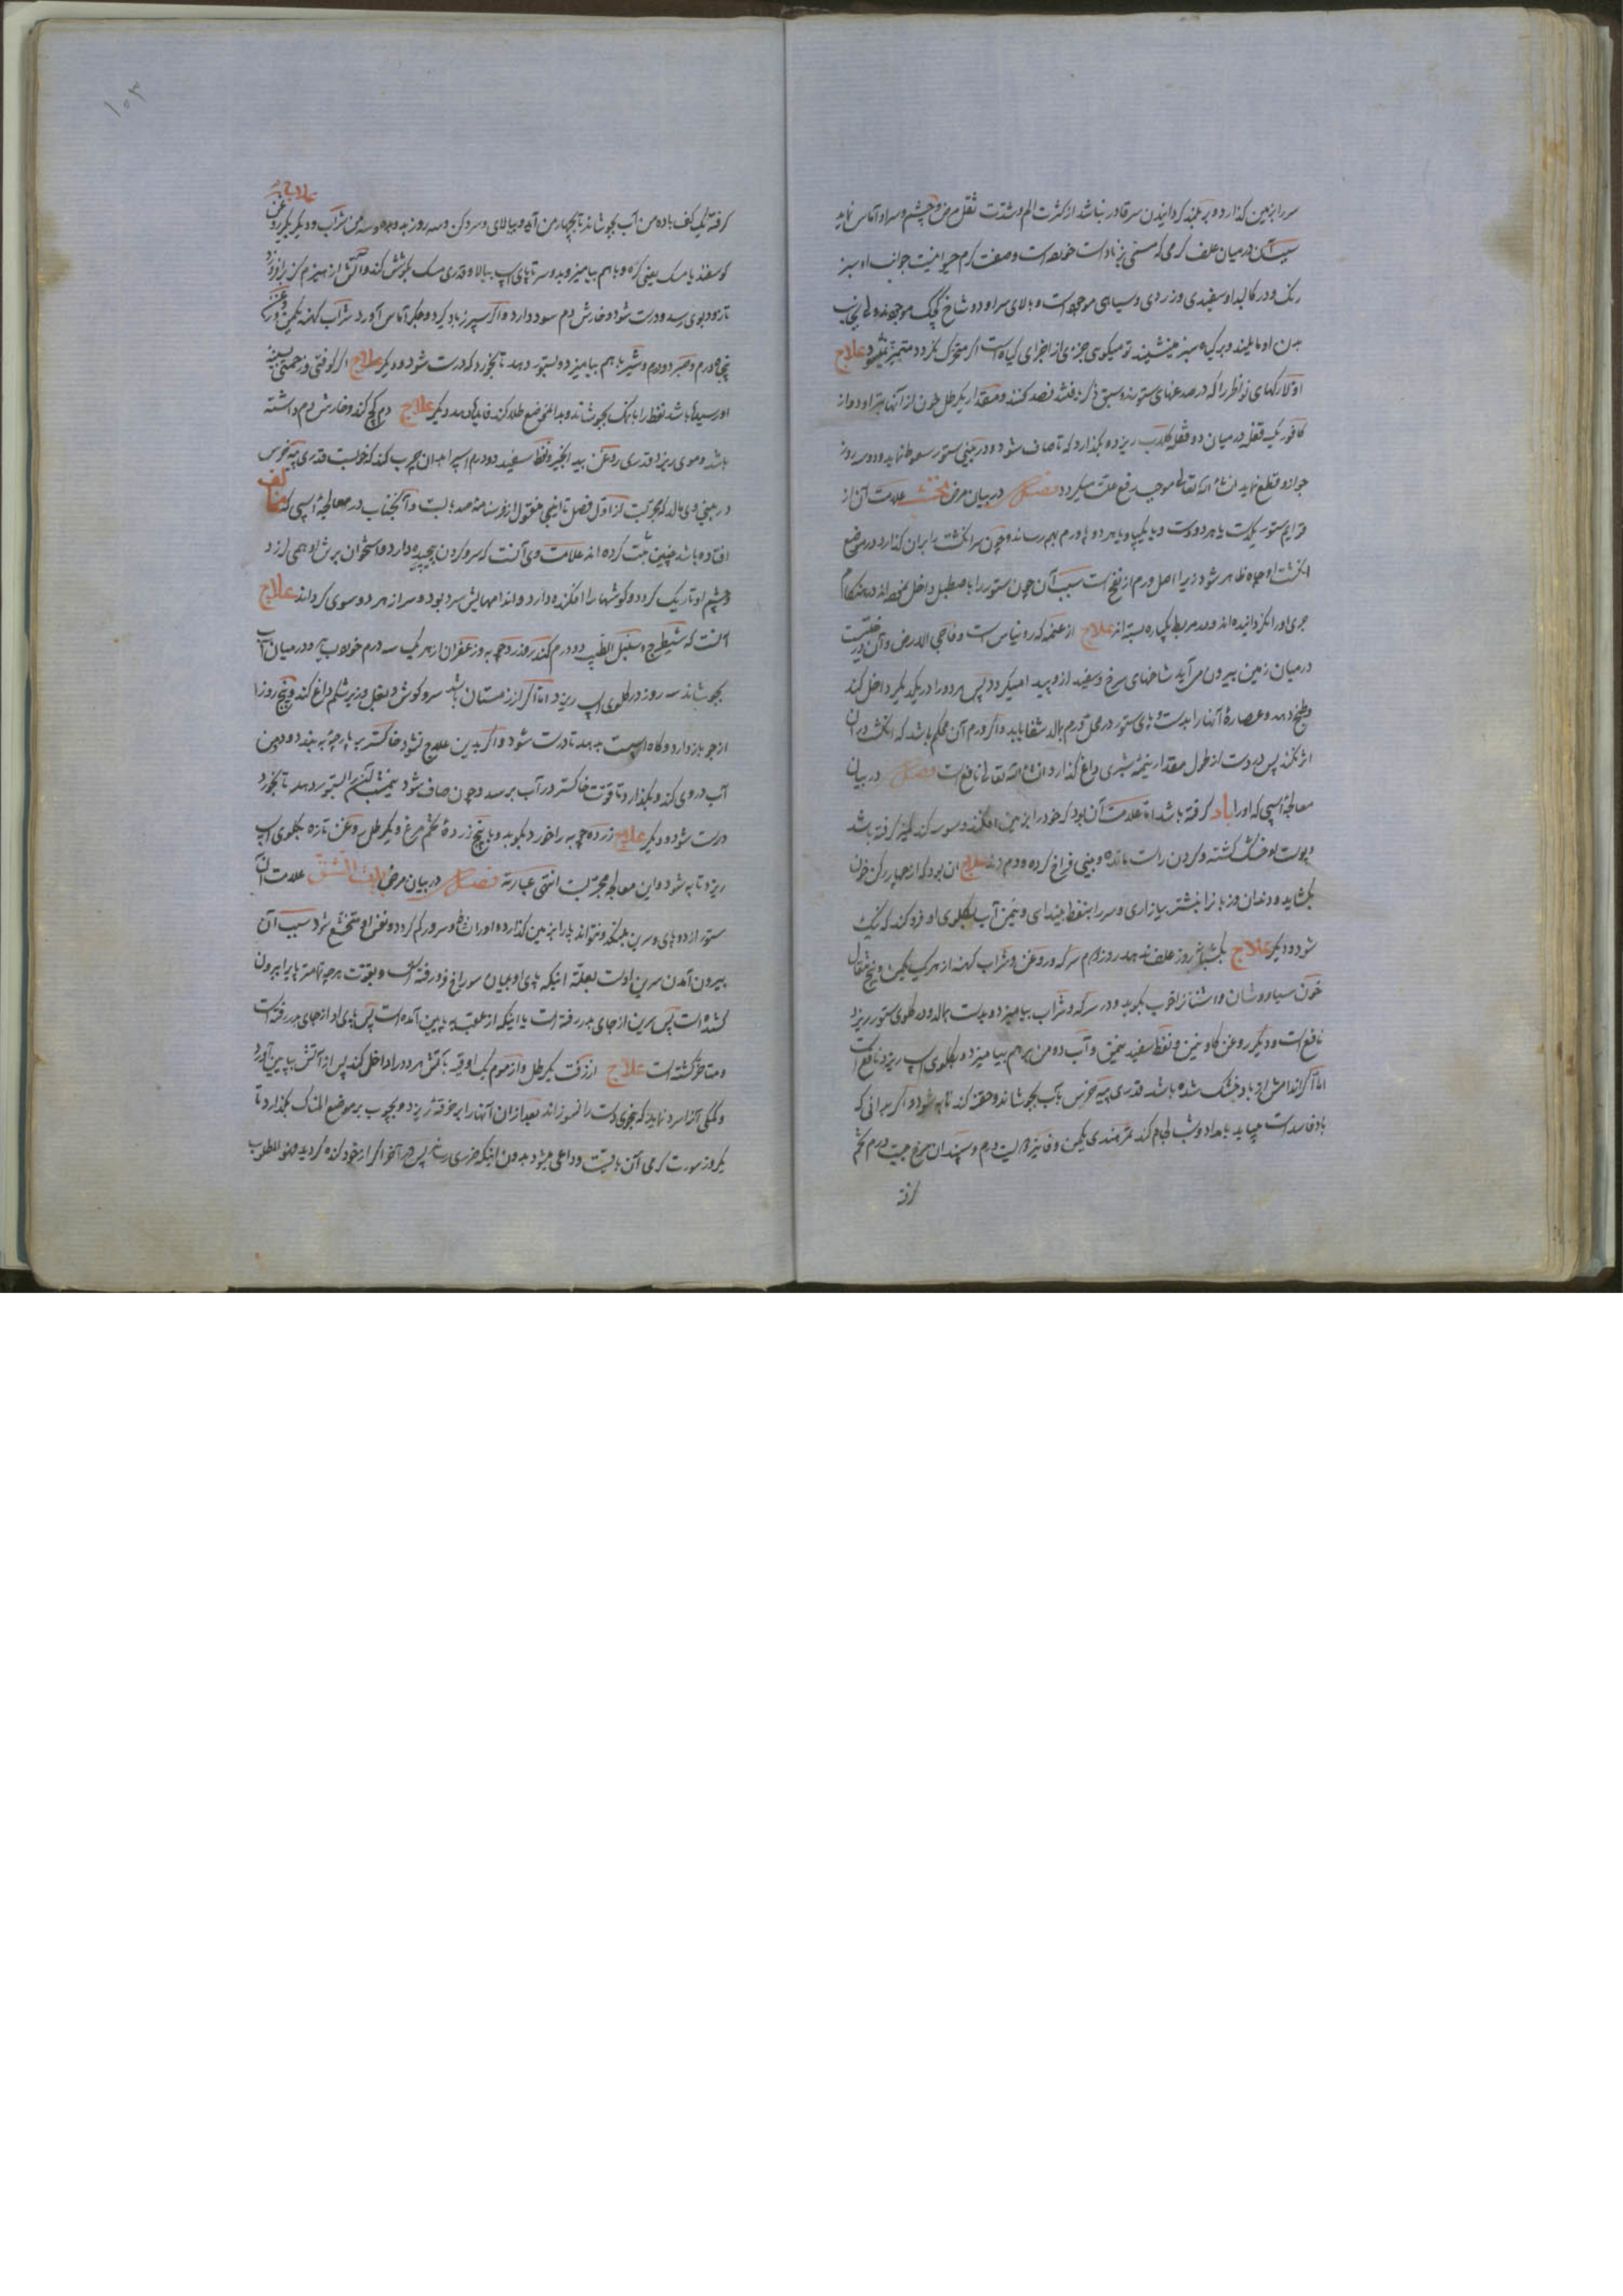 سر را بزمین گذارد و بر بلند گردانیدن سر قادر نباشد از کثرت الم و شدت ثقل مرض و چشم و سر او آماس نماید
سبب آن در میان علف کرمی که مسمی است و صفت کرم حیوانیت جوانب او سبز
رنگ و در کالبد او سفیدی و زردی و سیاهی موجود است و بالای سر او دو شاخ کوچک موجود
بدن او مایلیند و بر گیاه سبز مینشیند تو میگویی جزئی از اجزای گیاه است اگر متحرک نگردد متمیز نمیشود علاج
اولا رگهای نواظر را که در صدغهای ستورند سبق ذکر یافتند فصد کنند و مقدار یکرطل خون از آنها بردارد و از
کافور یک قفله در میان دو قفله گلاب ریزد و بگذارد که تا صاف شود و در بینی ستور سعوط نماید و دو سه روز
جو از او قطع نماید انشاء الله تعالی موجب رفع علت میگردد فصل در بیان مرض علامت آن از
قرایم ستور یکدست یا هر دو دست و یا یکپا و یا هر دو پا ورم بهم رساند و چون سر انگشت را بر آن گذارد در موضع
انگشت او چاه ظاهر شود زیرا اصل ورم از نفخ است سبب آن چون ستور را باصطبل داخل نموده‌اند در هنگام
جری او را نگردانیده‌اند و در مربط یکباره بسته‌اند علاج از عنمه که روناس است و فاجی الارض و آن درختیست
در میان زمین بیرون می‌آید شاخهای سرخ و سفید از او پدید میگردد پس هر دو را در یکدیگر داخل کند
و طبخ دهد و عصاره آنها را بدست و پای ستور در محل ورم بمالد شفا یابد و اگر ورم آن محکم باشد که انگشت در آن
اثر نکند پس در دست از طول مقدار نیمه شبری داغ گذارد انشاء الله تعالی نافع است فصل در بیان
معالجه اسپی که او را باد گرفته باشد اما علامت آن بود که خود را بزمین افکند و گرفته باشد
و پوست او خشک گشته و گردن راست مانده و بینی فراخ کرده و دم زند علاج آن بود که از چهار رگ خون
بگشاید و دندان و زبانرا بنشتر بیازاری و سر را بنفط بیندای و نیمن آب بگلوی او فرو کند که نیک
شود و دیگر علاج یکشبانه روز علف ندهد روز دوم سرکه و روغن و شراب کهنه از هر یک یکمن و پنج مثقال
خون سیاوشان و اشنان را خوب بکوبد و در سرکه و شراب بیامیزد و بدست بمالد و در گلوی ستور ریزد
نافع است و دیگر روغن گاو نیمن و نفط سفید نیمن و آب دو من بر هم بیامیزد و بگلوی اسپ ریزد نافع است
اما اگر اندامش از باد خشک شده باشد قدری پیه خرس بآب بجوشاند و حقنه کند تا به شود و اگر بدانی که
باد فاسد است میباید بامداد و شب لجام کند تمر هندی یکمن و فانیذ دویست درم و سپندان سرخ بیست درم تخم
گرفته
۱۰۳
علاج
گرفته یک کف با ده من آب بجوشاند تا بچهار من آید و بپالای و سرد کن و سه روز بدو من شراب و دیگر یکرروغن
گوسفند یا مسک یعنی کره و با هم بیامیزد و بدو سر تا پای اسپ بیالا و قدری مسک بگوش کند و آتش از هیزم گز برافروزد
تا دود بوی رسد و درست شود و خارش دم سود دارد و اگر سپرز باد کرد و جگر آماس آورد شراب کهنه یکمن و روغن
پنجاه درم و صبر دو درم و شیر با هم بیامیزد و بستور دهد تا بخورد که درست شود و دیگر علاج اگر کوفتی و زحمتی بسینه
او رسیده باشد نفط را با نمک بجوشاند و بدان موضع طلا کند فایده دهد دیگر علاج دم کج کند و خارش دم داشته
باشد و موی ریزد قدری روغن بید انجیر و نفط سفید دو درم اسپ را بدان چرب کند که خوبست قدری پیه خرس
در بینی وی بمالد که مجربست از اول فصل تا اینجا منقول از فرسنامه و آنجناب در معالجه اسپی که خناق
افتاده باشد چنین ثبت کرده‌اند علامت وی آنست که سر و گردن پیچیده دارد و استخوان برش او همی لرزد
و چشم او تاریک گردد و گوشها را افکنده دارد و اندامهایش سرد بود و سر از هر دو سوی گرداند علاج
آنست که شیطرج و سنبل الطیب دو درم کندر و زردچوبه و زعفران از هر یک سه درم خوب و در میان آب
بجوشاند سه روز در گلوی اسپ ریزد اما اگر از زمستان باشد سر و گوش و بغل و زیر شکم داغ کند و پنج روز
از جو باز دارد و کاه اسپست بدهد تا درست شود و اگر بدین علاج نشود خاکستر به پارچه به بندد و دو من
آب در وی کند و بگذارد تا قوت خاکستر در آب برسد و چون صاف شود نیمشب آنرا بستور دهد تا بخورد
درست شود و دیگر علاج زرده چوبه را خورد بکوبد و با پنج زرده تخم مرغ و یکرطل روغن تازه بگلوی اسپ
ریزد تا به شود و این معالجه مجربست انتهی عبارته فصل در بیان مرض علامت آن
ستور از دو پای و سرین بلنگد و نتواند پا را بزمین گذارد و او را نشاط و سرور کم گردد و نفس او متخشع شود سبب آن
بیرون آمدن سرین اوست بعلت اینکه پای او بمیان سوراخ فرو رفته است و بقوت هر چه تمامتر پا را بیرون
کشیده است پس سرین از جای بدر رفته است یا اینکه از عقبه به پایین آمده است پس پای او از جای بدر رفته است
و متاخر گشته است علاج از زفت یکرطل و از موم یک اوقیه بآتش هر دو را داخل کند پس از آتش بپایین آورد
و کمکی آنرا سرد نماید که بنحوی دست را نسوزاند بعد از آن آنها را بر خرقه ریزد و بچوب بر موضع المناک بگذارد تا
یکروز سورت گرمی آن باقیست و داعی میشود بدون اینکه ضرری رساند پس در آخر اگر از خود کنده گردید فهو المطلوب